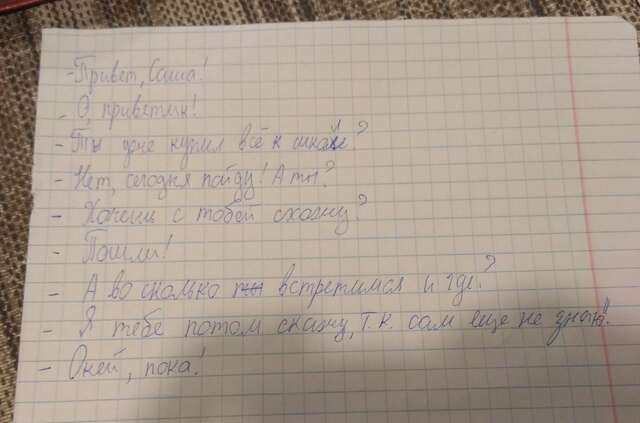 - Привет, Саша!
- О, приветик!
- Ты уже купил всё к школе?
- Нет, сегодня пойду! А ты?
- Хочешь с тобой схожу?
- Пошли!
- А во сколько встретимся и где?
- Я тебе потом скажу, т.к. сам ещё не знаю!
- Окей, пока!